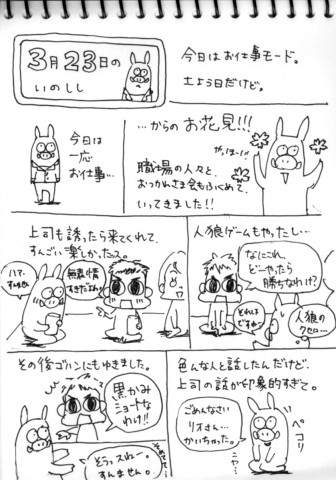 3月23日の
いのしし
今日はお仕事モード。
土よう日だけど。
今日は
一応
お仕事…
…からのお花見!!!
がっほーい!!
職場の人々と、
おつかれさま会もふくめて、
いってきました!!
上司も誘ったら来てくれて、
すんごい楽しかったス。
無表情
すぎだよねw
人狼ゲームもやったし…
なにされ、
どーやったら
勝ちなわけ?
それは
ですね…
人狼の
クセに…
その後ゴハンにもゆきました。
黒かみ
ショートな
わけ!!
そうっスねー。
すんません。
色んな人と話したんだけど、
上司の話が印象的すぎて。
ごめんなさい
リスさん…
かいちゃった。
ペコリ
ニヤ…